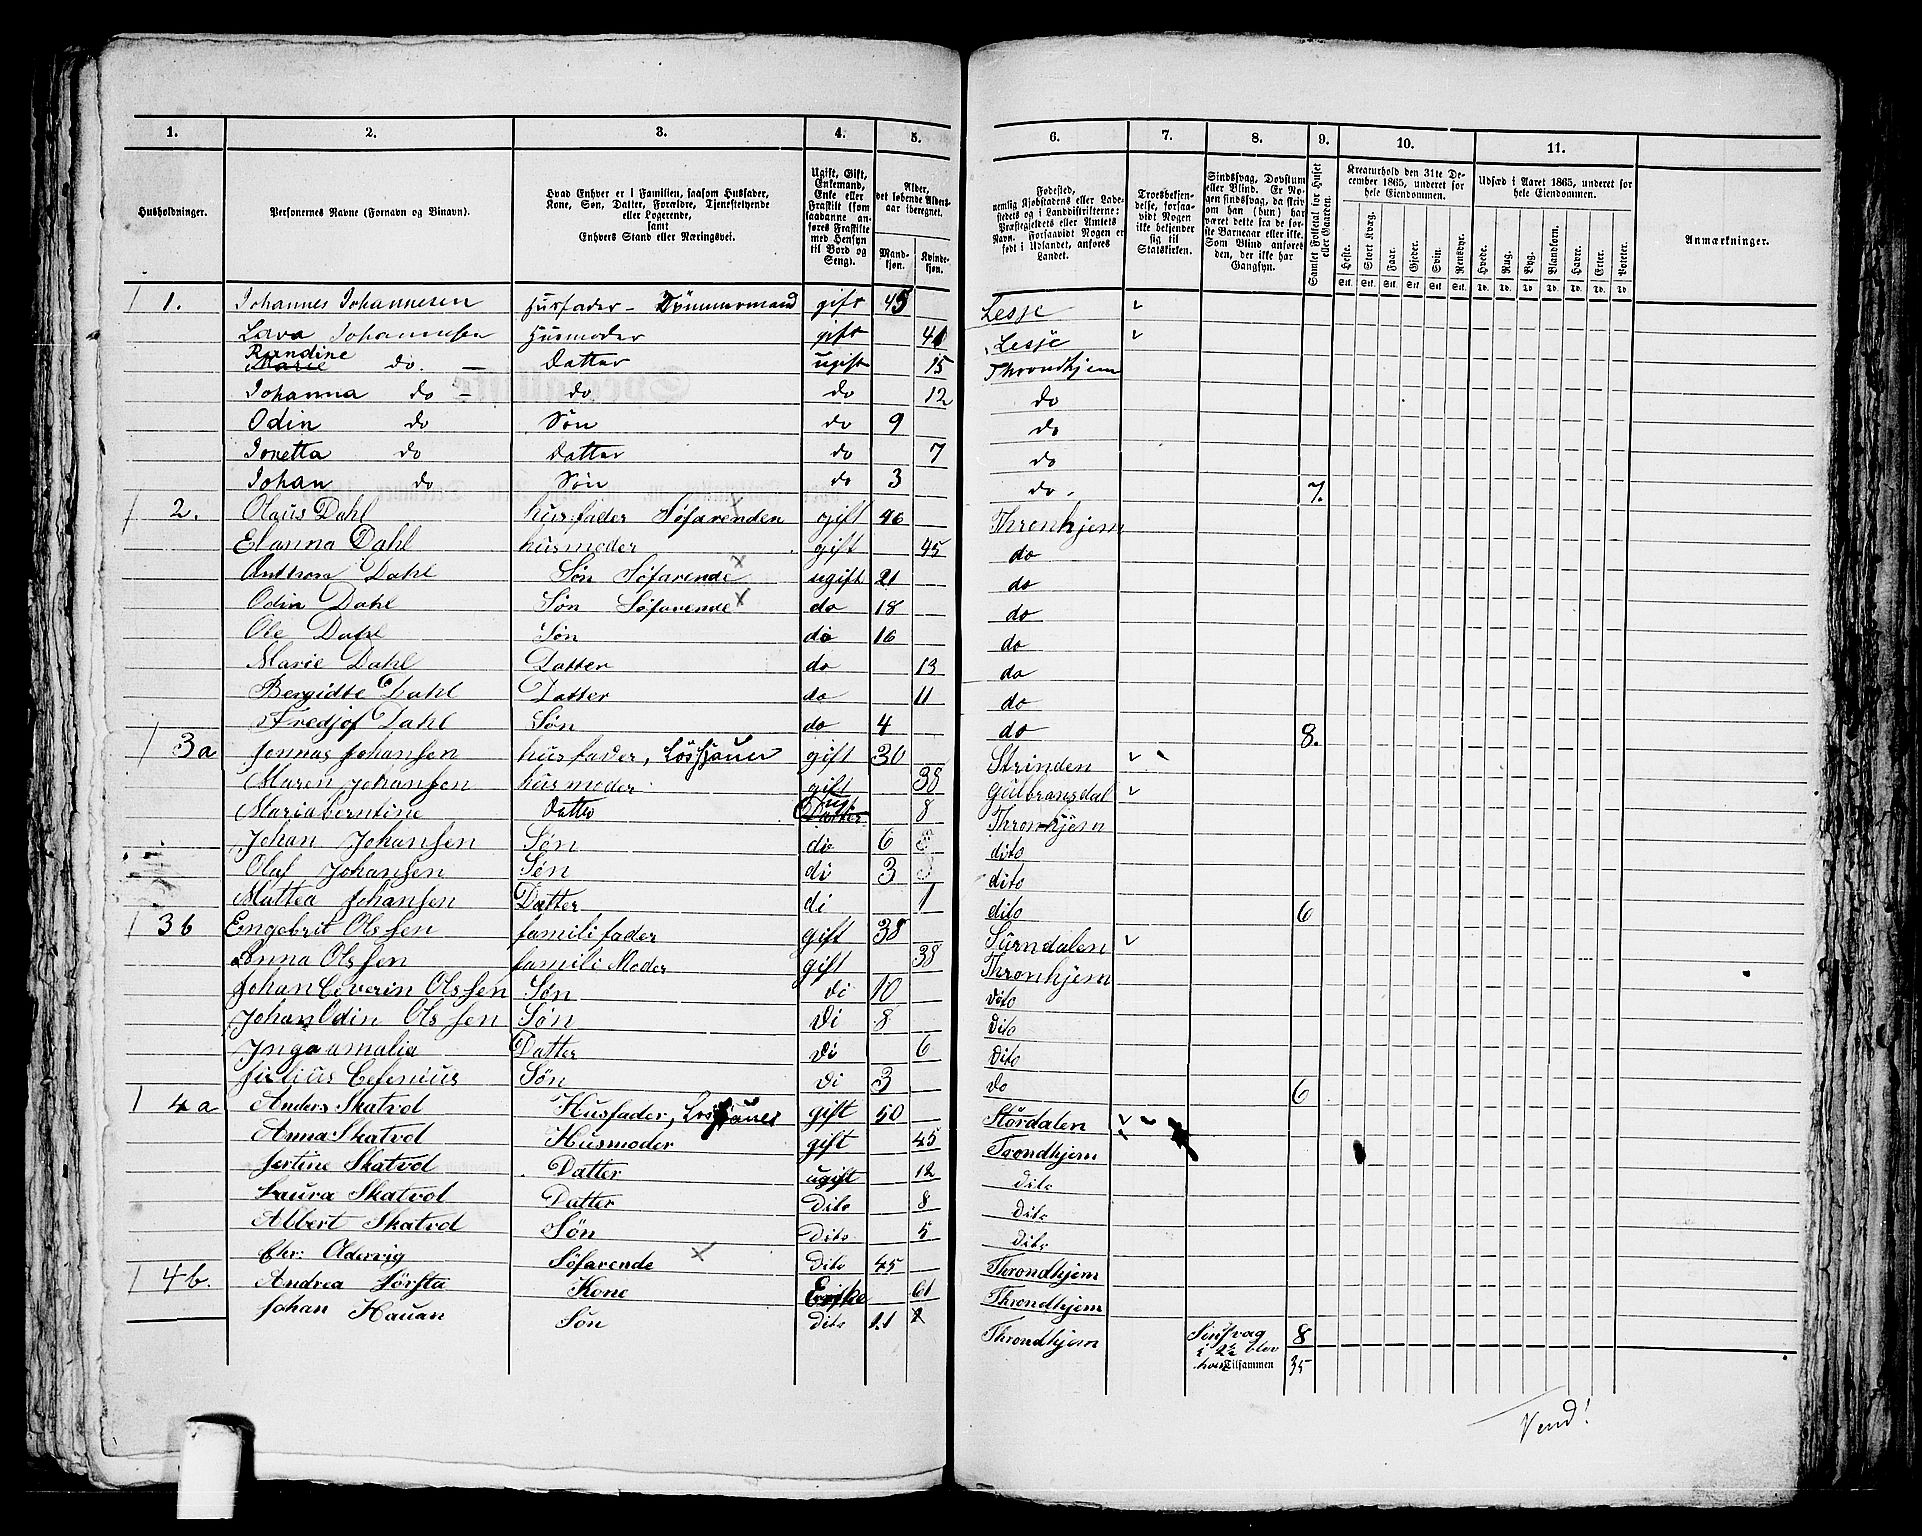 1. 2. 3. 4. 5. 6. 7. 8. 9. 10. 11.
Husholdninger. | Personernes Navne (Fornavn og Binavn). | Hvad Enhver er i Familien, saasom Husfader, Kone, Søn, Datter, Forældre, Tjenestetyende eller Logerende, samt Enhvers Stand eller Næringsvei. | Ugift, Gift, Enkemand, Enke eller Fraskilt (saadanne anføres Fraskilte med Hensyn til Bord og Seng). | Alder, det løbende Aldersaar iberegnet. Mandkjøn. Kvindekjøn. | Fødested, nemlig Kjøbstadens eller Ladestedets og i Landdistrikterne: Præstegjeldets eller Amtets Navn. Forsaavidt Nogen er født i Udlandet, anføres Landet. | Troesbekjendelse, forsaavidt Nogen ikke bekjender sig til Statskirken. | Sindssvag, Døvstum eller Blind. Er Nogen sindssvag, da skrives om han (hun) har været dette fra de første Barneaar eller ikke. Som Blind anføres den, der ikke har Gangsyn. | Samlet Folketal for Huset eller Gaarden. | Kreaturhold den 31te December 1865, underet for hele Eiendommen. Heste. Stort Kvæg. Faar. Gjeder. Svin. Rensdyr. | Udsæd i Aaret 1865, underet for hele Eiendommen. Hvede. Rug. Byg. Blandkorn. Havre. Erter. Poteter. | Anmærkninger.
Stk. Stk. Stk. Stk. Stk. Stk. Td. Td. Td. Td. Td. Td. Td.
1. Johannes Johannesen Husfader - Tømmermand gift 45 Lesje
Johannesen Husmoder gift 41 Lesje
Randine Marie do. - Datter ugift 15 Throndhjem
Johanna do - do do 12 do
Odin do Søn do 9 do
Jonetta do Datter do 7 do
Johan do Søn do 3 do. 7.
2. Olaus Dahl husfader Søfarenden gift 46 Thronhjem
Elanna Dahl husmoder gift 45 do
Anthon Dahl Søn Søfarende ugift 21 do
Odin Dahl Søn Søfarende do 18 do
Ole Dahl Søn do 16 do
Marie Dahl Datter do 13 do
Bergidte Dahl Datter do 11 do
Fredjof Dahl Søn do 4 do 8.
3a Jonnas Johansen husfader, Løssjauer gift 30 Strinden
Maren Johansen husmoder gift 38 Gulbransdal
Maria berntine Datter Datter ugt 8 Thronhjem
Johan Johansen Søn di 6 dito
Olaf Johansen Søn di 3 dito
Mattea Johansen Datter di 1 dito 6
3b Engebrit Olssen familifader gift 38 Surndalen
Anna Olssen familiModer gift 38 Thronhjem
Johan Ceverin Olssen Søn di 10 dito
Johan Odin Olssen Søn Di 8 dito
Inga amalia Datter Di 6 dito
Julius Celenius Søn Di 3 do 6
4a Anders Skatvol Husfader, Løssjauer gift 50 Størdalen
Anna Skatvol Husmoder gift 45 Trondhjem
Jertine Skatvol Datter ugift 12 dito
Laura Skatvol Datter Dito 8 dito
Albert Skatvol Søn Dito 5 dito
Chr: Oldervig Søfarende Dito 45 Throndhjem
4b. Andrea Kone Enke 61 Throndhjem
Johan Hauan Søn dito 21 Throndhjem Sinsvag 8
i 2de blev
Tilsammen 35
Vend!